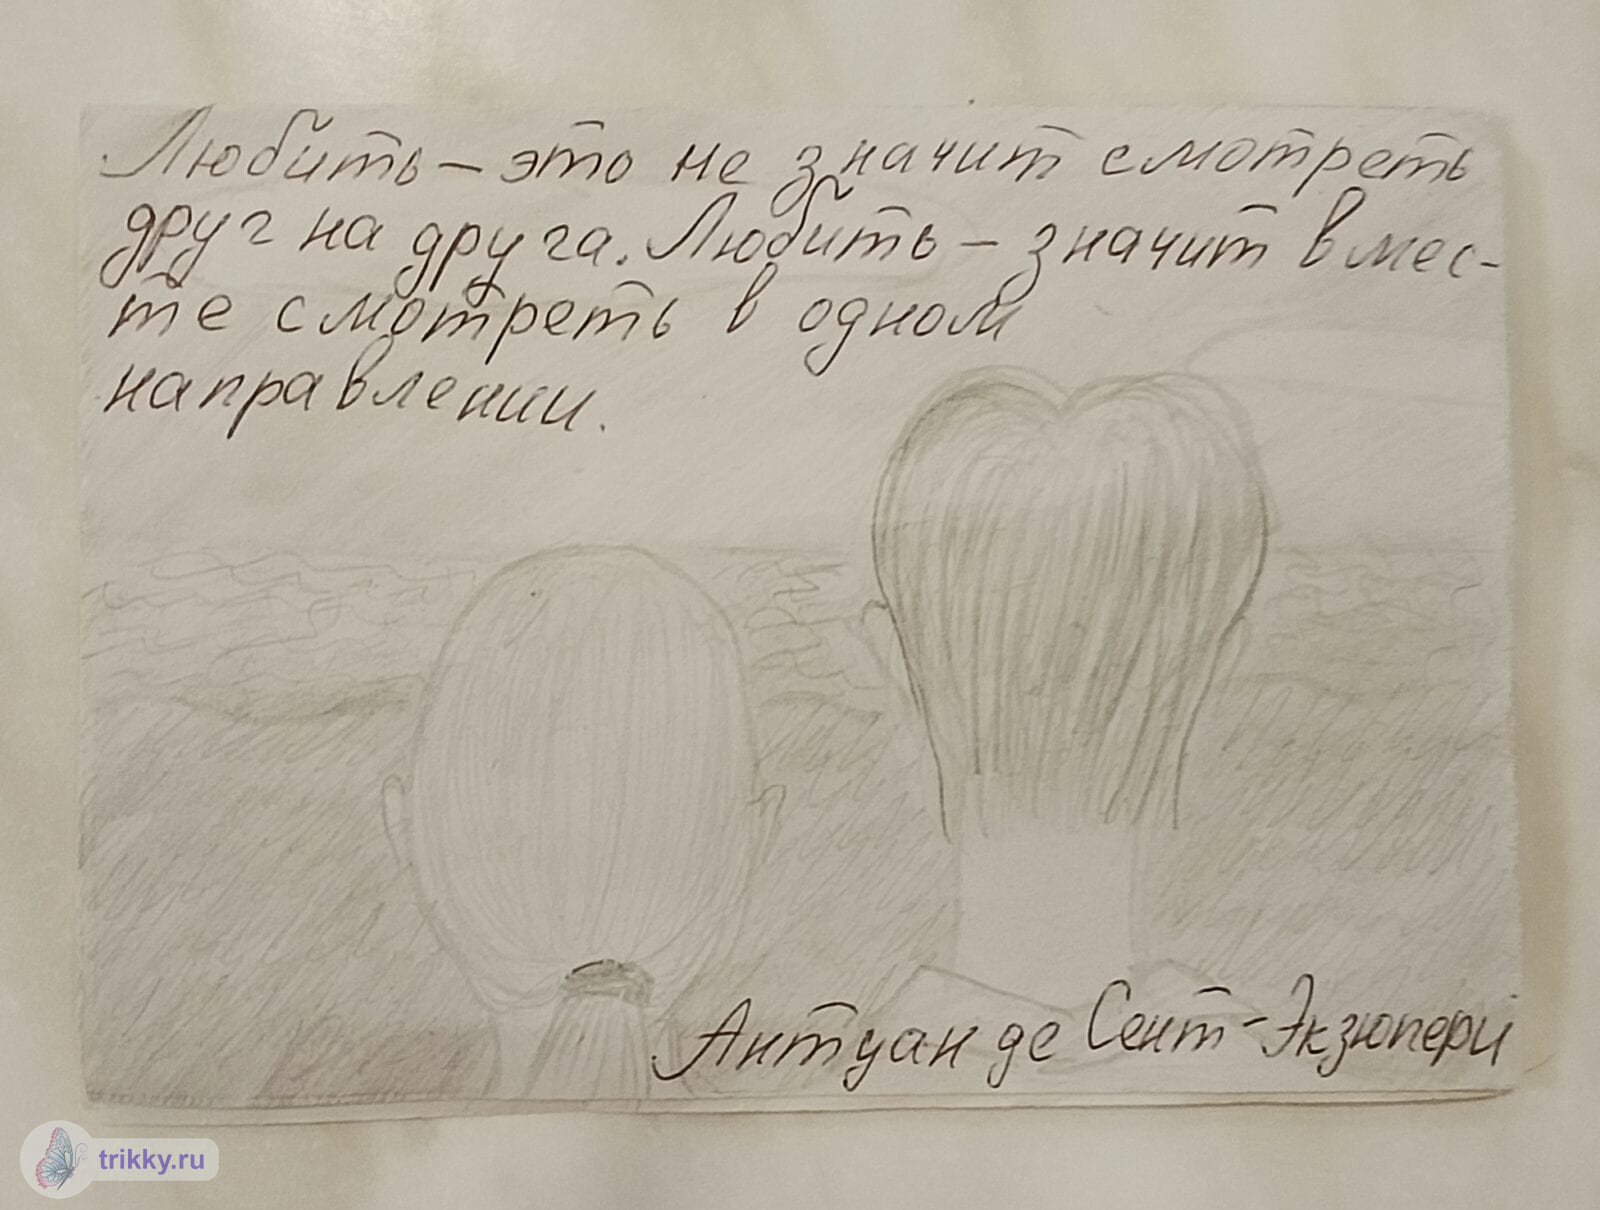 Любить – это не значит смотреть
друг на друга. Любить – значит вмес-
те смотреть в одном
направлении.
Антуан де Сент-Экзюпери
trikky.ru